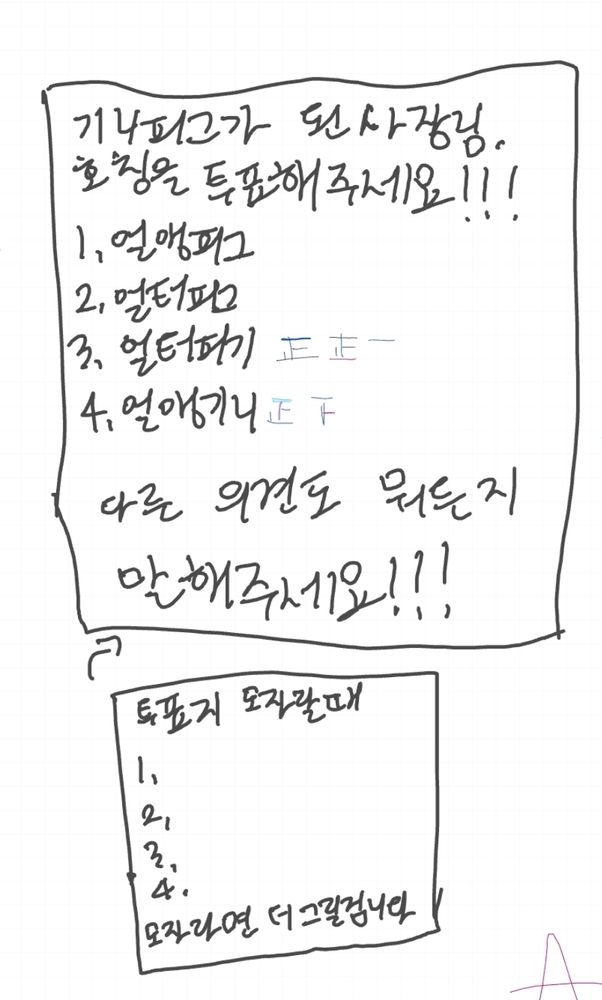 기니피그가 된 사장님.
호칭을 투표해주세요!!!
1. 얼앵피그
2. 얼터피그
3. 얼터피기 正 正 一
4. 얼앵기니 正 下
다른 의견도 뭐든지
말해주세요!!!
투표지 모자랄때
1.
2.
3.
4.
모자라면 더그릴겁니다